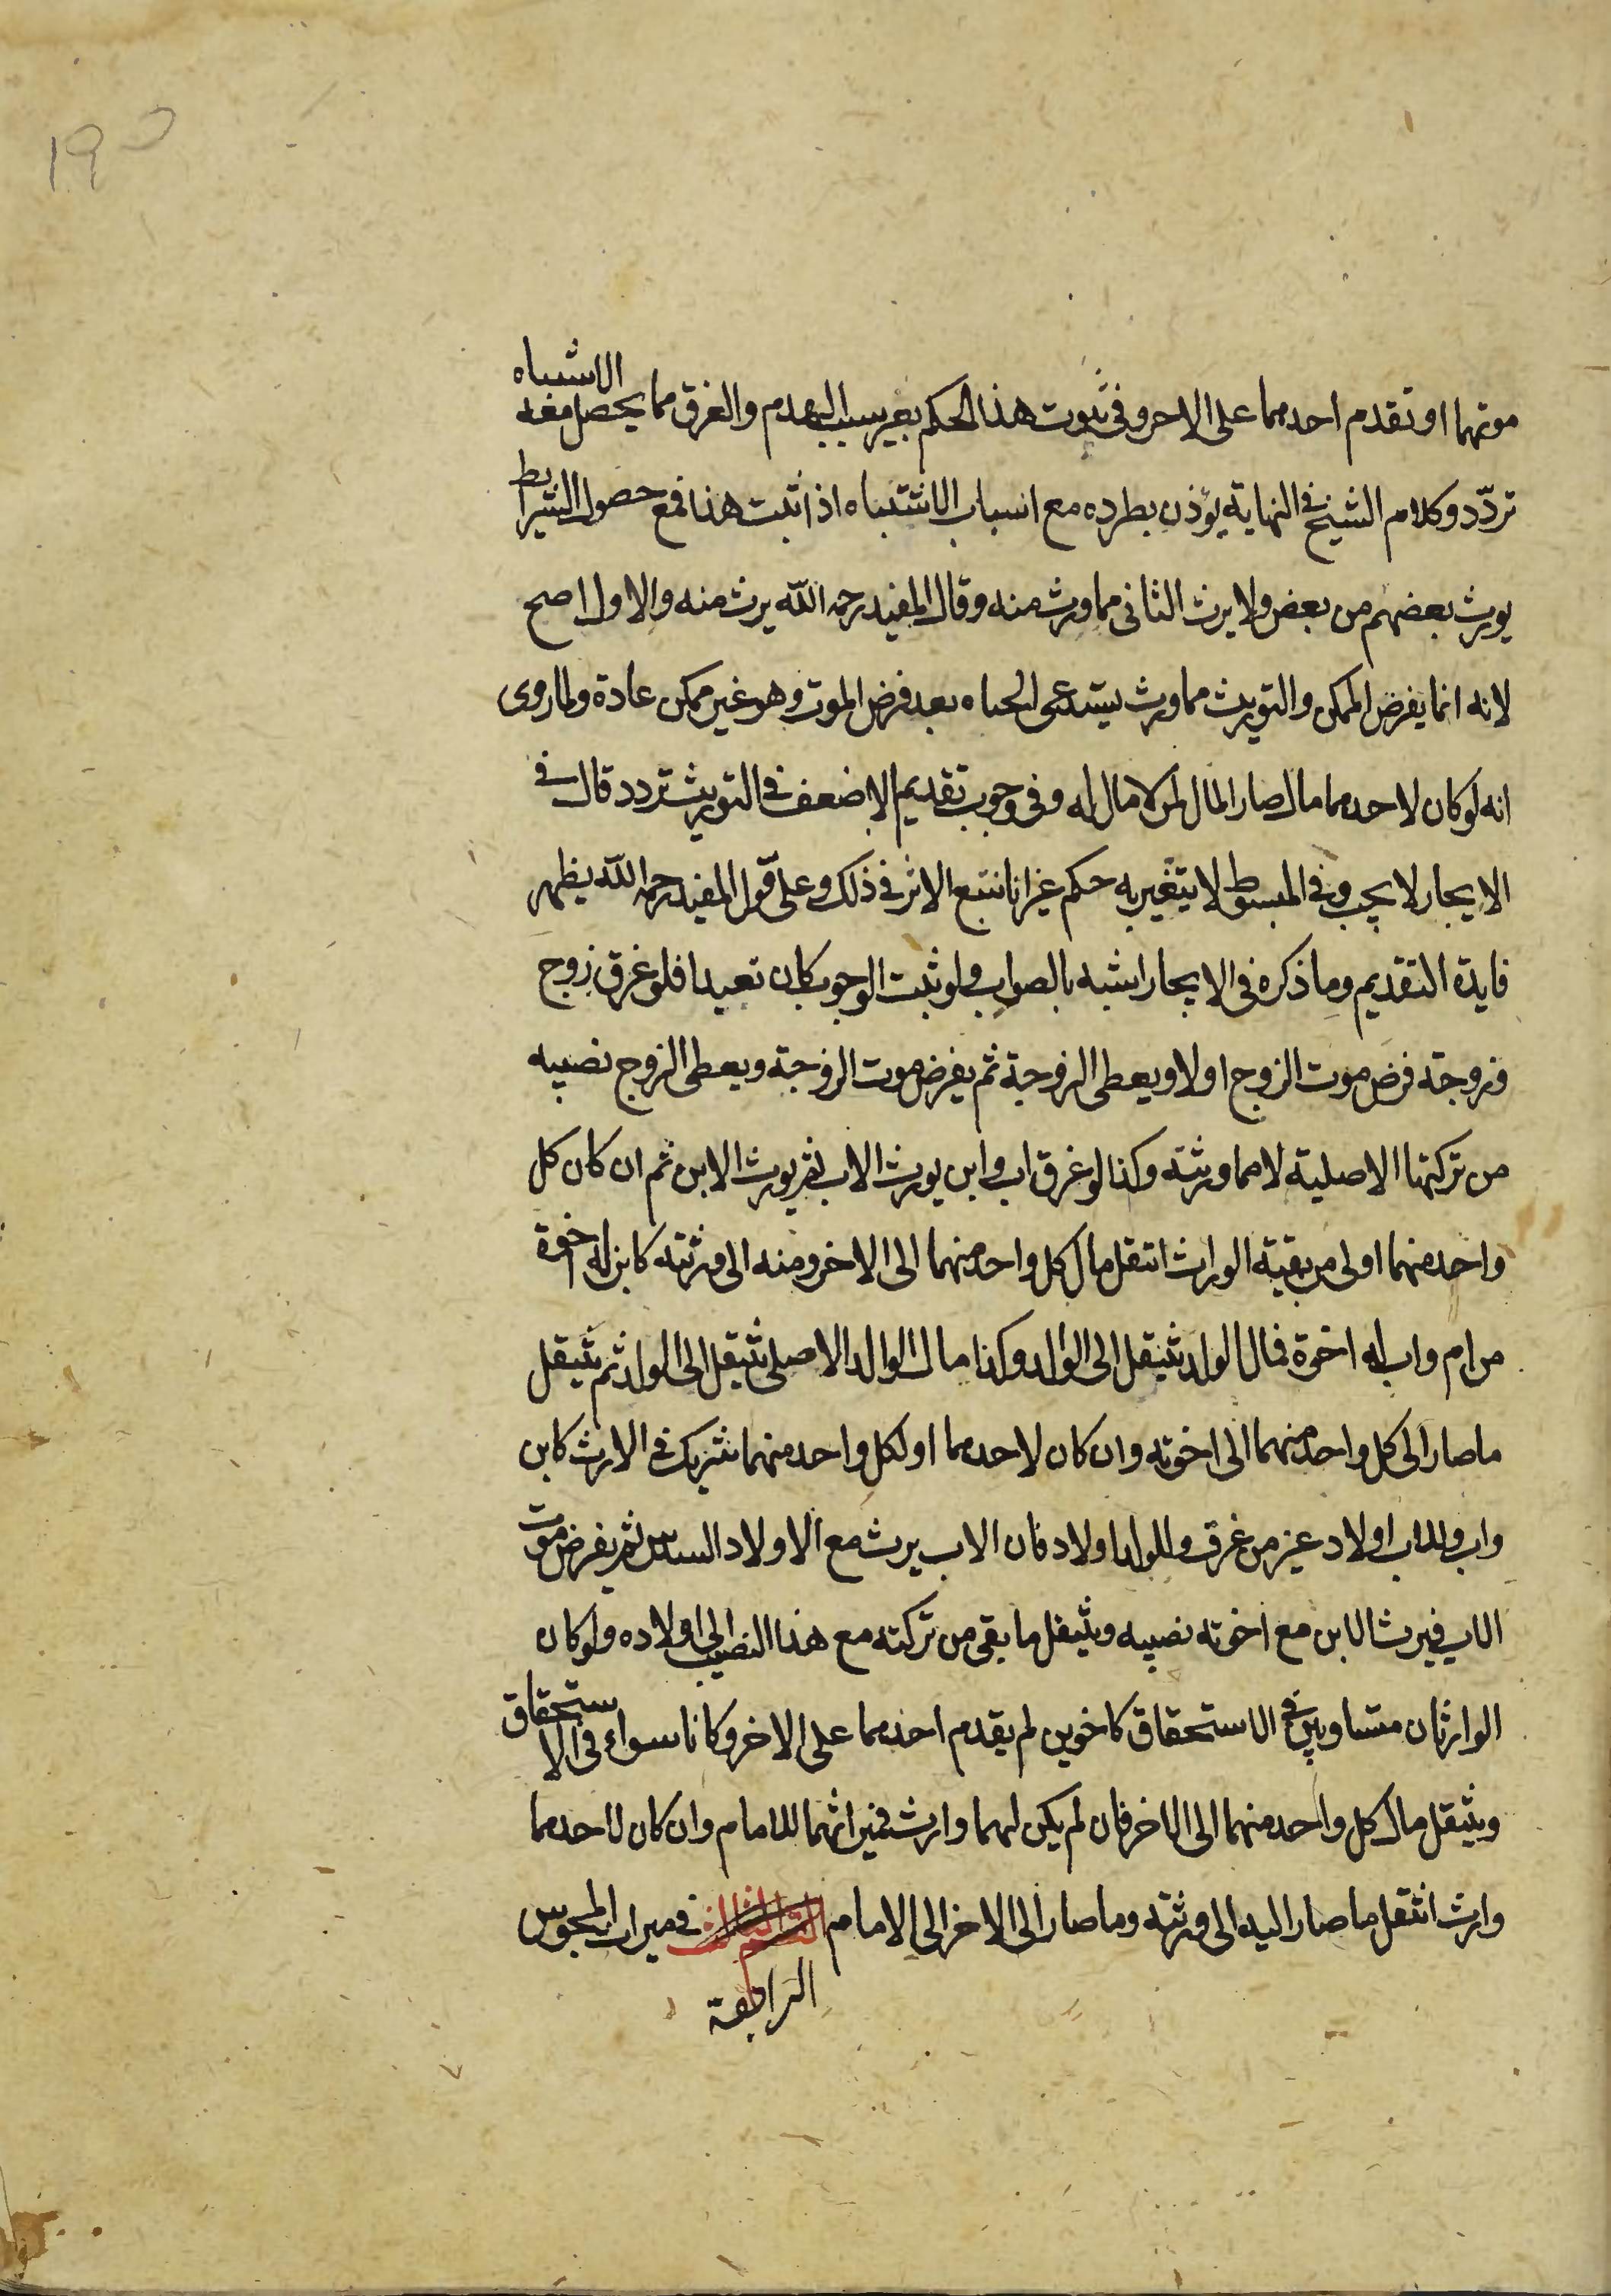 ١٩٥
موتهما او تقدم احدهما على الاخر وفى ثبوت هذا الحكم بغير سبب الهدم والغرق مما يحصل معه الاشتباه
تردّد وكلام الشيخ فى النهاية يؤذن بطرده مع اسباب الاشتباه اذا ثبت هذا فمع حصول الشرايط
يورث بعضهم من بعض ولا يرث الثانى مما ورث منه وقال المفيد رحمه الله يرث منه والاول اصح
لانه انما يفرض الممكن والتوريث مما ورث يستدعى الحياه بعد فرض الموت وهو غير ممكن عادة ولما روى
انه لو كان لاحدهما مال صار المال لمن لا مال له وفى وجوب تقديم الاضعف فى التوريث تردد قال فى
الايجاز لا يجب وفى المبسوط لا يتغير به حكم غير انا نتبع الاثر فى ذلك وعلى قول المفيد رحمه الله يظهر
فايدة التقديم وما ذكره فى الايجاز اشبه بالصواب ولو ثبت الوجوب كان تعبدا فلو غرق زوج
وزوجة فرض موت الزوج اولا ويعطى الزوجة ثم يفرض موت الزوجة ويعطى الزوج نصيبه
من تركتها الاصلية لا مما ورثته وكذا لو غرق اب وابن يورث الاب ثم يورث الابن ثم ان كان كل
واحد منهما اولى من بقية الوراث انتقل مال كل واحد منهما الى الاخر ومنه الى ورثته كابن له اخوة
من ام واب له اخوة فمال الولد ينتقل الى الوالد وكذا مال الوالد الاصلى ينتقل الى الولد ثم ينتقل
ما صار الى كل واحد منهما الى اخوته وان كان لاحدهما او لكل واحد منهما شريك فى الارث كابن
واب وللاب اولاد غير من غرق وللولد اولاد فان الاب يرث مع الاولاد السدس ثم يفرض موت
الاب فيرث الابن مع اخوته نصيبه وينتقل ما بقى من تركته مع هذا النصيب الى اولاده ولو كان
الوارثان متساويين فى الاستحقاق كاخوين لم يقدم احدهما على الاخر وكانا سواء فى الاستحقاق
وينتقل مال كل واحد منهما الى الاخر فان لم يكن لهما وارث فميراثهما للامام وان كان لاحدهما
وارث انتقل ما صار اليه الى ورثته وما صار الى الاخر الى الامام فى ميراث المجوس
الرابعة